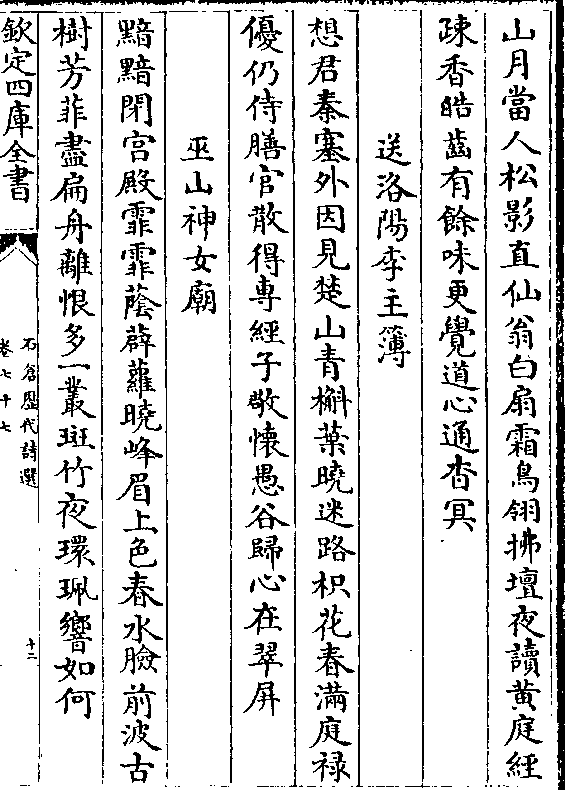 山月當人松影直仙翁白扇霜鳥翎拂壇夜讀黃庭經
疎香皓齒有餘味更覺道心通杳冥
送洛陽李主簿
想君秦塞外因見楚山青槲葉曉迷路枳花春滿庭禄
優仍侍膳官散得專經子敬懷愚谷歸心在翠屏
巫山神女廟
黯黯閉宮殿霏霏蔭薜蘿曉峰眉上色春水臉前波古
樹芳菲盡扁舟離恨多一叢斑竹夜環珮響如何
欽定四庫全書
石倉歷代詩選
卷七十七
十二